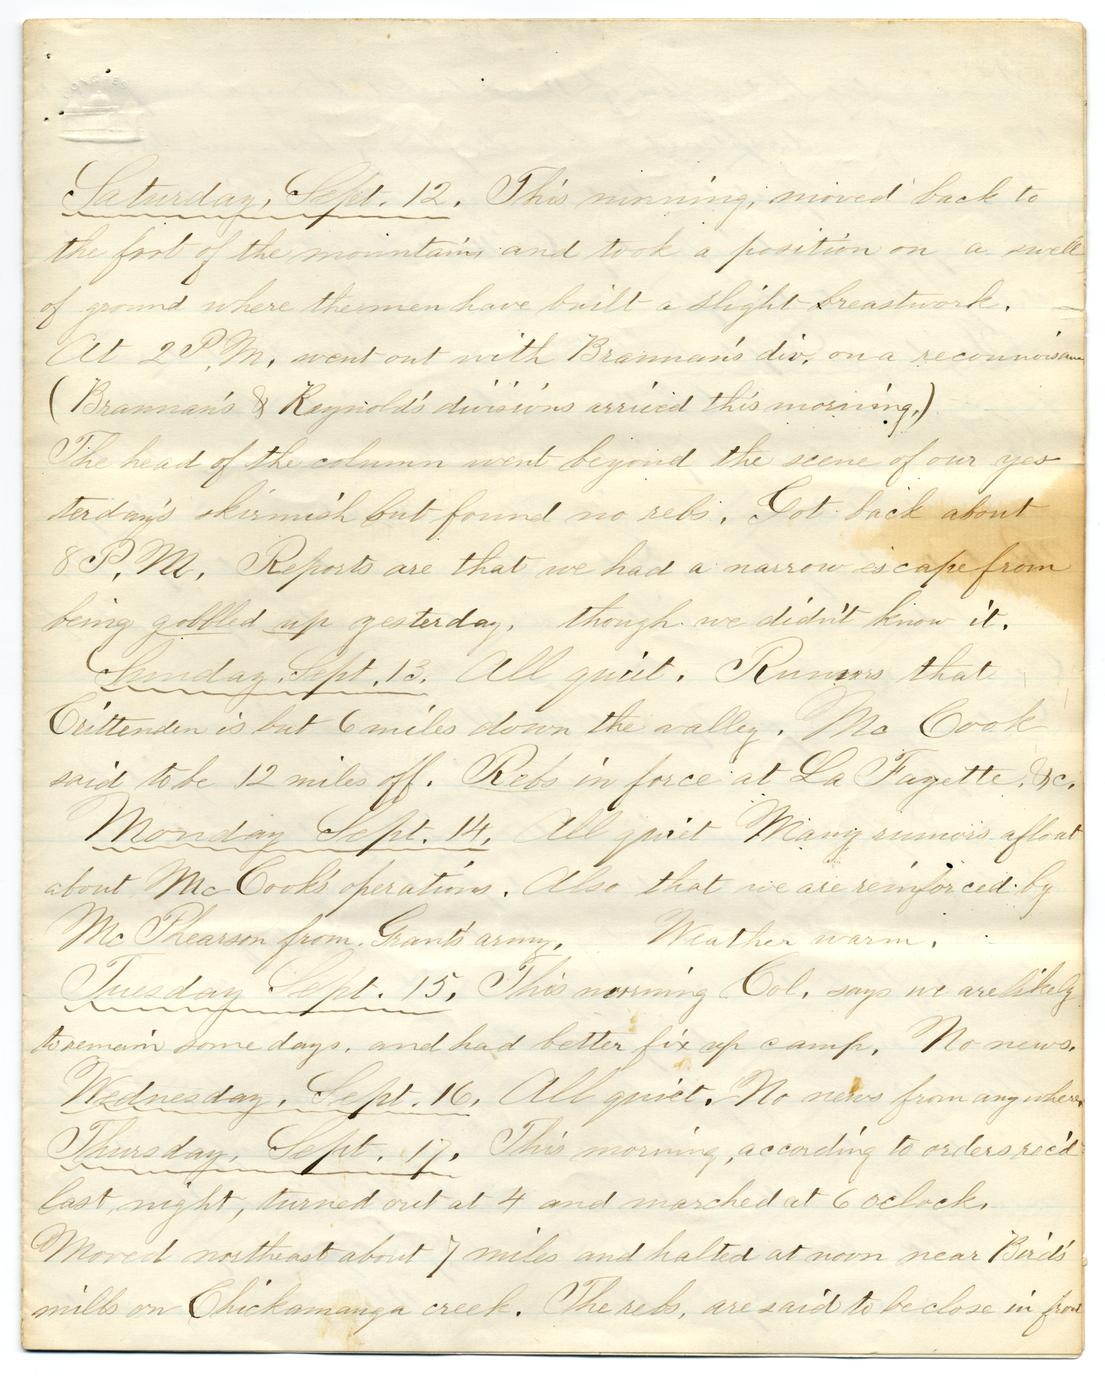 Saturday, Sept. 12. This morning, moved back to
the foot of the mountains and took a position on a swell
of ground where the men have built a slight breastwork.
At 2 P.M. went out with Brannan's div. on a reconnoisance
(Brannan's & Reynold's divisions arrived this morning.)
The head of the column went beyond the scene of our yes
terday's skirmish but found no rebs. Got back about
8 P.M. Reports are that we had a narrow escape from
being gobbled up yesterday, though we didn't know it.
Sunday, Sept. 13. All quiet. Rumors that
Crittenden is but 6 miles down the valley. Mc Cook
said to be 12 miles off. Rebs in force at La Fayette, &c.
Monday Sept. 14. All quiet Many rumors afloat
about Mc Cook's operations. Also that we are reinforced by
Mc Phearson from Grant's army. Weather warm.
Tuesday Sept. 15. This morning Col. says we are likely
to remain some days, and had better fix up camp. No news.
Wednesday, Sept. 16. All quiet. No news from anywhere.
Thursday, Sept. 17. This morning, according to orders rec'd
last night, turned out at 4 and marched at 6 oclock.
Moved northeast about 7 miles and halted at noon near Bird's
mills on Chickamauga creek. The rebs, are said to be close in front